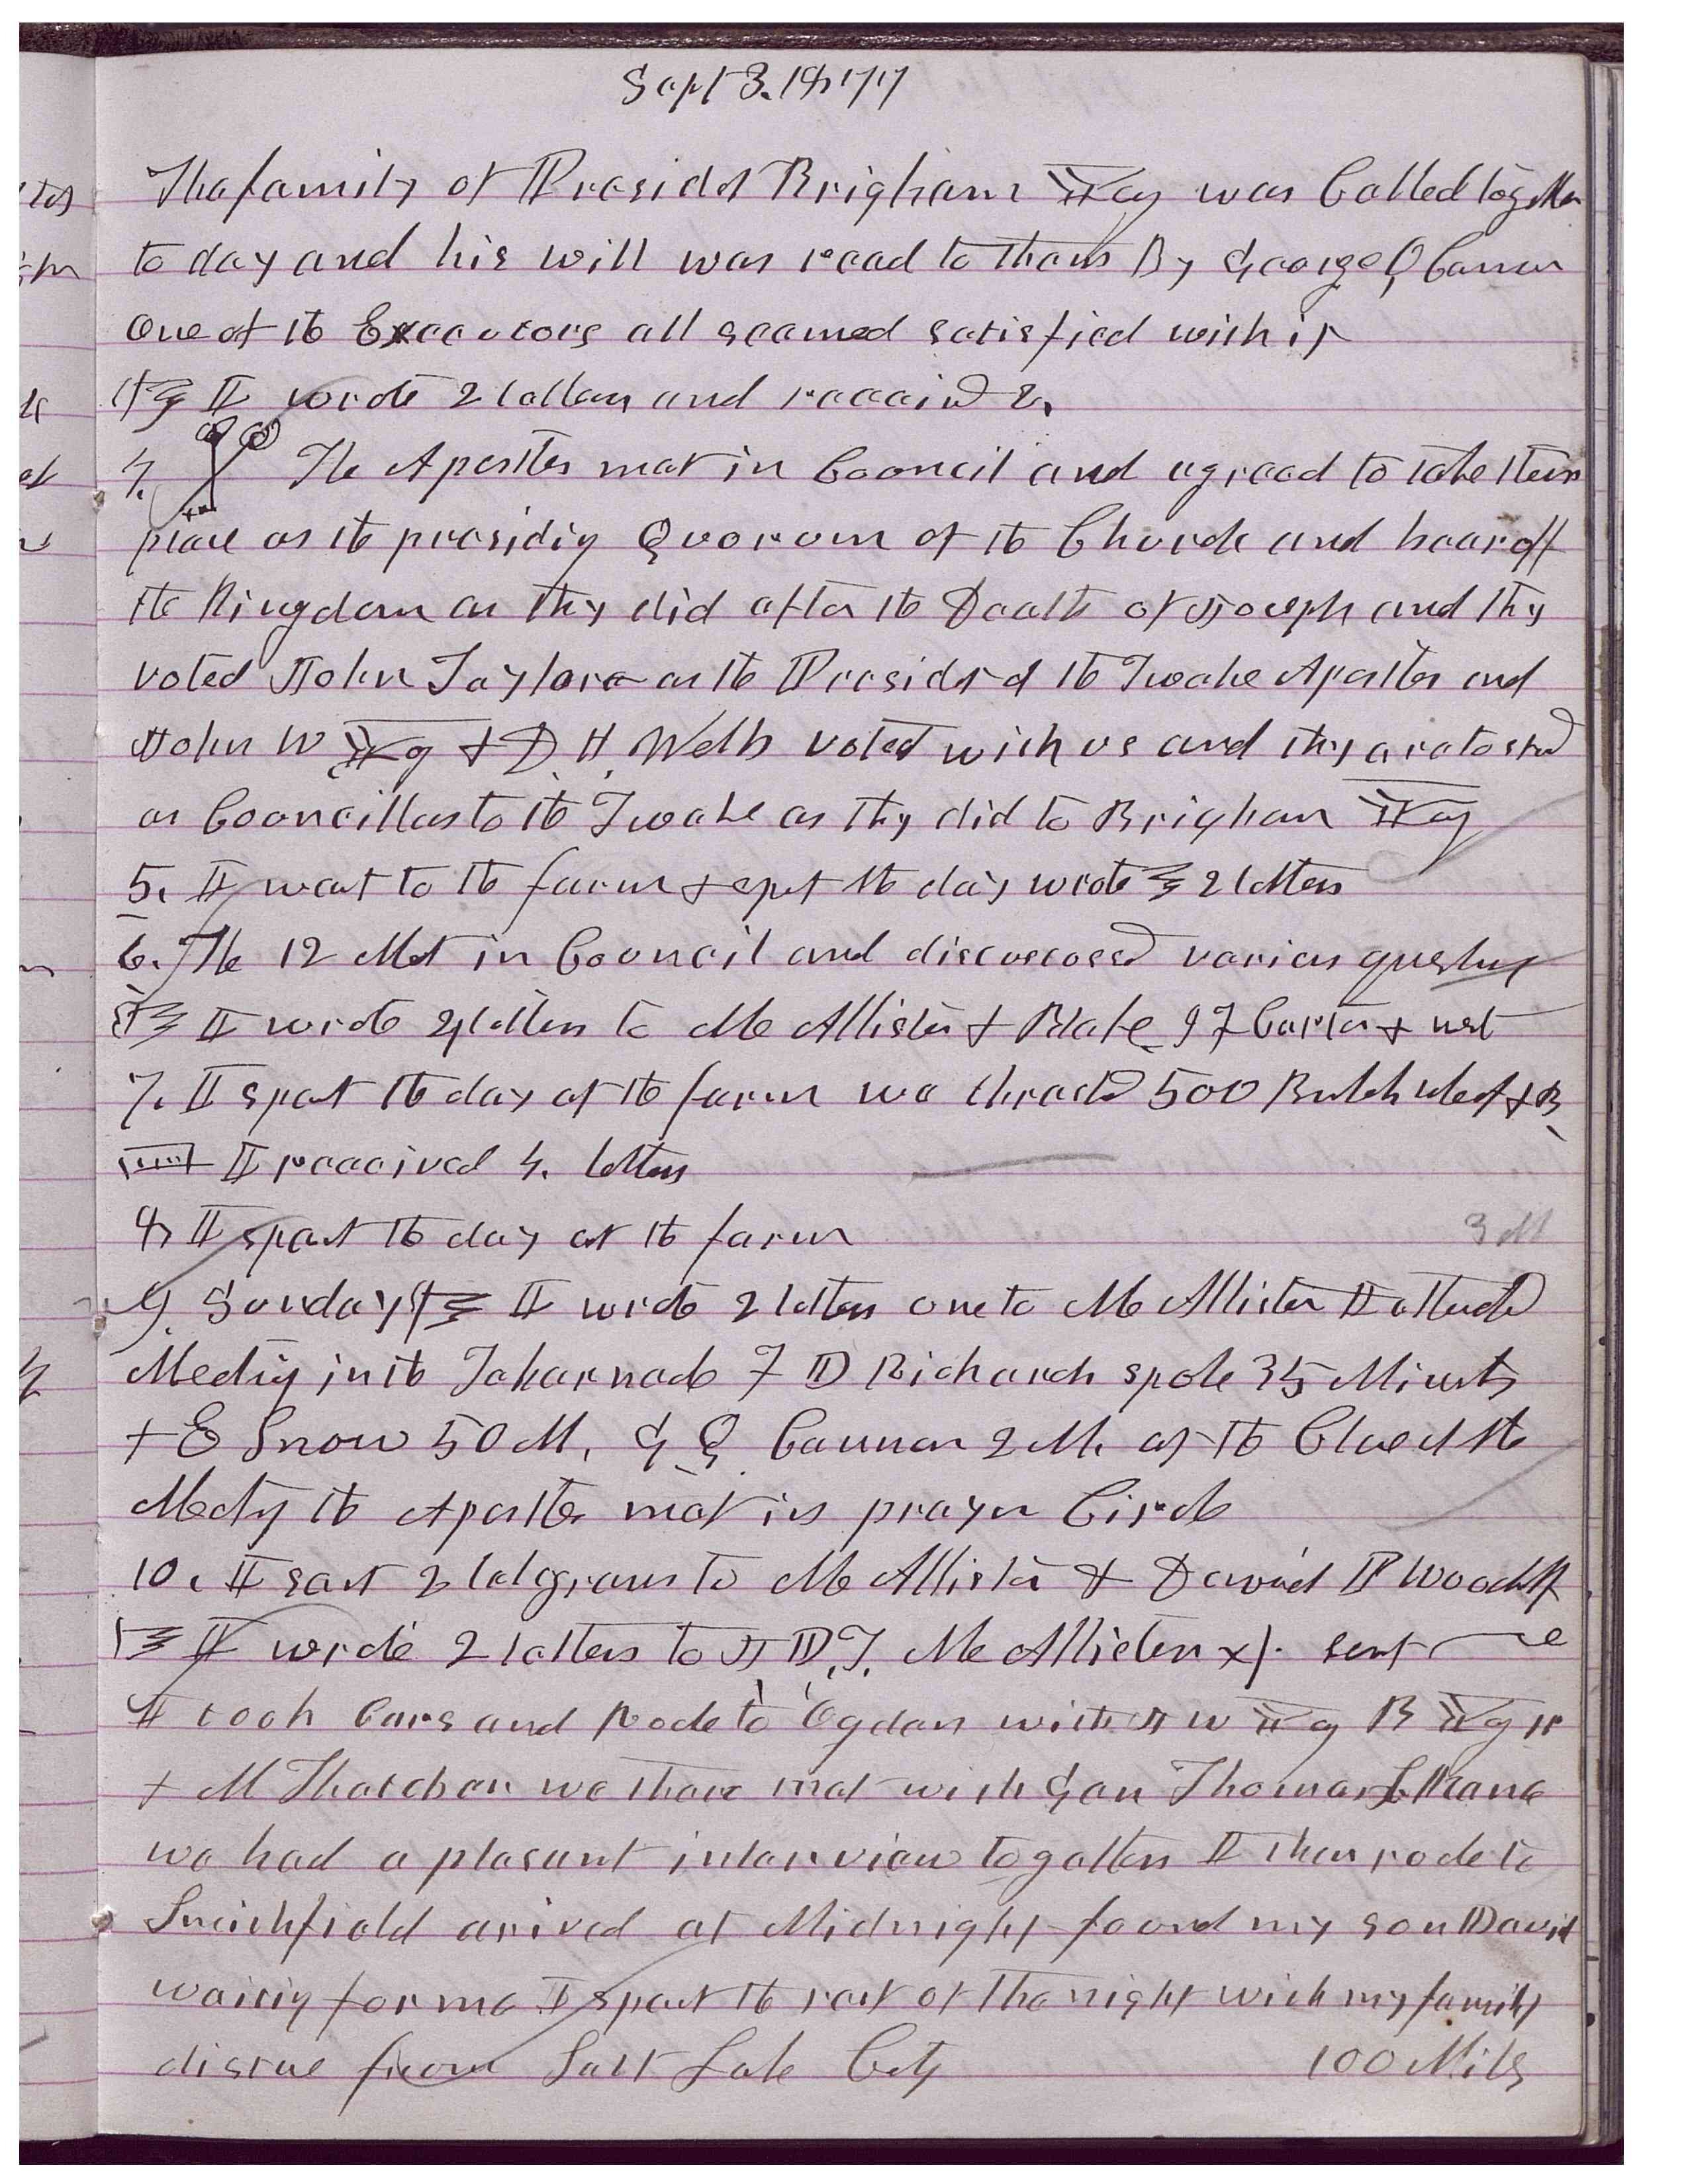 Sept 3. 1877
The family of Presidet Brigham Yg was Called together
to day and his will was read to them By George Q Cannon
One of the Executors all seemed satisfied with it
I wrote 2 letters and receivd 2.
4. The Apostles met in Council and agreed to take their
place as the presidig Quorum of the Church and
the Kingdom as they did after the Death of Joseph and they
voted John Taylor as the Presidet of the Twelve Apostles and
John W Yg & D. H. Wells voted with us and they are to stand
as Councillors to the Twelve as they did to Brigham Yg
5. I went to the farm & spet the day wrote 2 letters
6. The 12 Met in Council and discussed various
I wrote 4 letters to McAllister & Blake J F Carter &
7. I spent the day at the farm we threshd 500 Bush wheat & B
I received 4. letters
8 I spent the day at the farm 3 M
9. Sunday I wrote 2 letters one to McAllister I attended
Meetig in the Tabernacle F D Richards spoke 35 Minuts
& E Snow 50 M. G Q. Cannon 2 M. at the Close of the
Meetig the Apostles met in prayer Circle
10. I sent 2 telegrams to McAllister & David P Woodruff
I wrote 2 letters to J. D. T. McAllister sent
I took Cars and Rode to Ogden with J W Yg B Yg jr
& M Thatcher we there met with Gen Thomas L Kane
we had a plesant interview together I then rode to
Smithfield arived at Midnight found my son David
waitig for me I spent the rest of the night with my family
distance from Salt Lake City 100 Miles